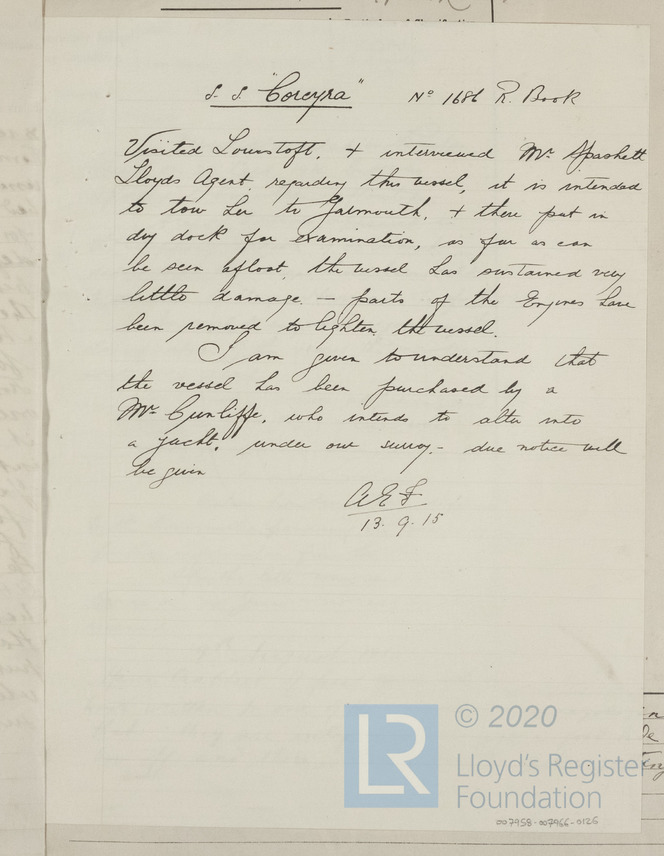 S. S. "Corcyra" No 1686 R. Book
Visited Lowestoft, + interviewed Mr. Spashett
Lloyds Agent, regarding this vessel, it is intended
to tow her to Yarmouth, + there put in
dry dock for examination, as far as can
be seen afloat, the vessel has sustained very
little damage - parts of the Engines have
been removed to lighten the vessel.
I am given to understand that
the vessel has been purchased by a
Mr. Cunliffe, who intends to alter into
a yacht, under our survey - due notice will
be given
13. 9. 15
LR
© 2020
Lloyd's Register
Foundation
007958-007966-0126